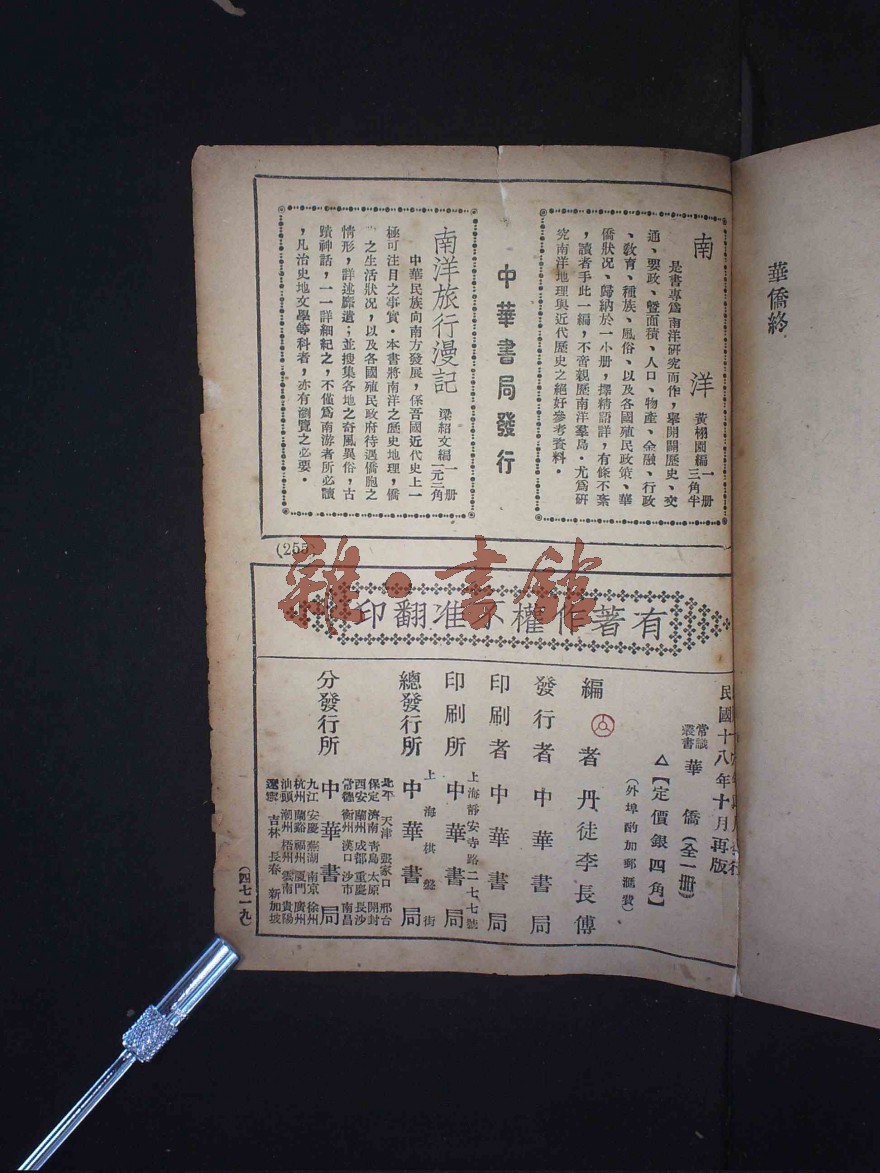 華僑終
南洋
黃栩園編
一册
三角半
是書專爲南洋研究而作，舉開闢歷史、交
通、要政、暨面積、人口、物產、金融、行政
、敎育、種族、風俗、以及各國殖民政策、華
僑狀况、歸納於一小册，擇精語詳，有條不紊
，讀者手此一編，不啻親歷南洋羣島．尤爲研
究南洋地理與近代歷史之絕好參考資料．
中華書局發行
南洋旅行漫記
梁紹文編
一册
一元二角
中華民族向南方發展，係吾國近代史上一
極可注目之事實．本書將南洋之歷史地理，僑
之生活狀况，以及各國殖民政府待遇僑胞之
情形，詳述靡遺；並搜集各地之奇風異俗，古
蹟神話，一一詳細紀之，不僅爲南游者所必讀
，凡治史地文學等科者，亦有瀏覽之必要．
(255)
有著作權不准翻印
民國十八年十月再版
常識叢書
華僑(全一册)
△【定價銀四角】
(外埠酌加郵滙費)
編者 丹徒李長傅
發行者 中華書局
印刷者 中華書局
上海靜安寺路二七七號
印刷所 中華書局
上海棋盤街
總發行所 中華書局
分發行所 中華書局
北平 天津 張家口 邢台
保定 濟南 靑島 太原 開封
西安 蘭州 成都 重慶 長沙
常德 衡州 漢口 沙市 南昌
九江 安慶 蕪湖 南京 徐州
杭州 蘭谿 福州 厦門 廣州
汕頭 潮州 梧州 雲南 貴陽
遼寧 吉林 長春 新加坡
(四七一九)
雜·書館